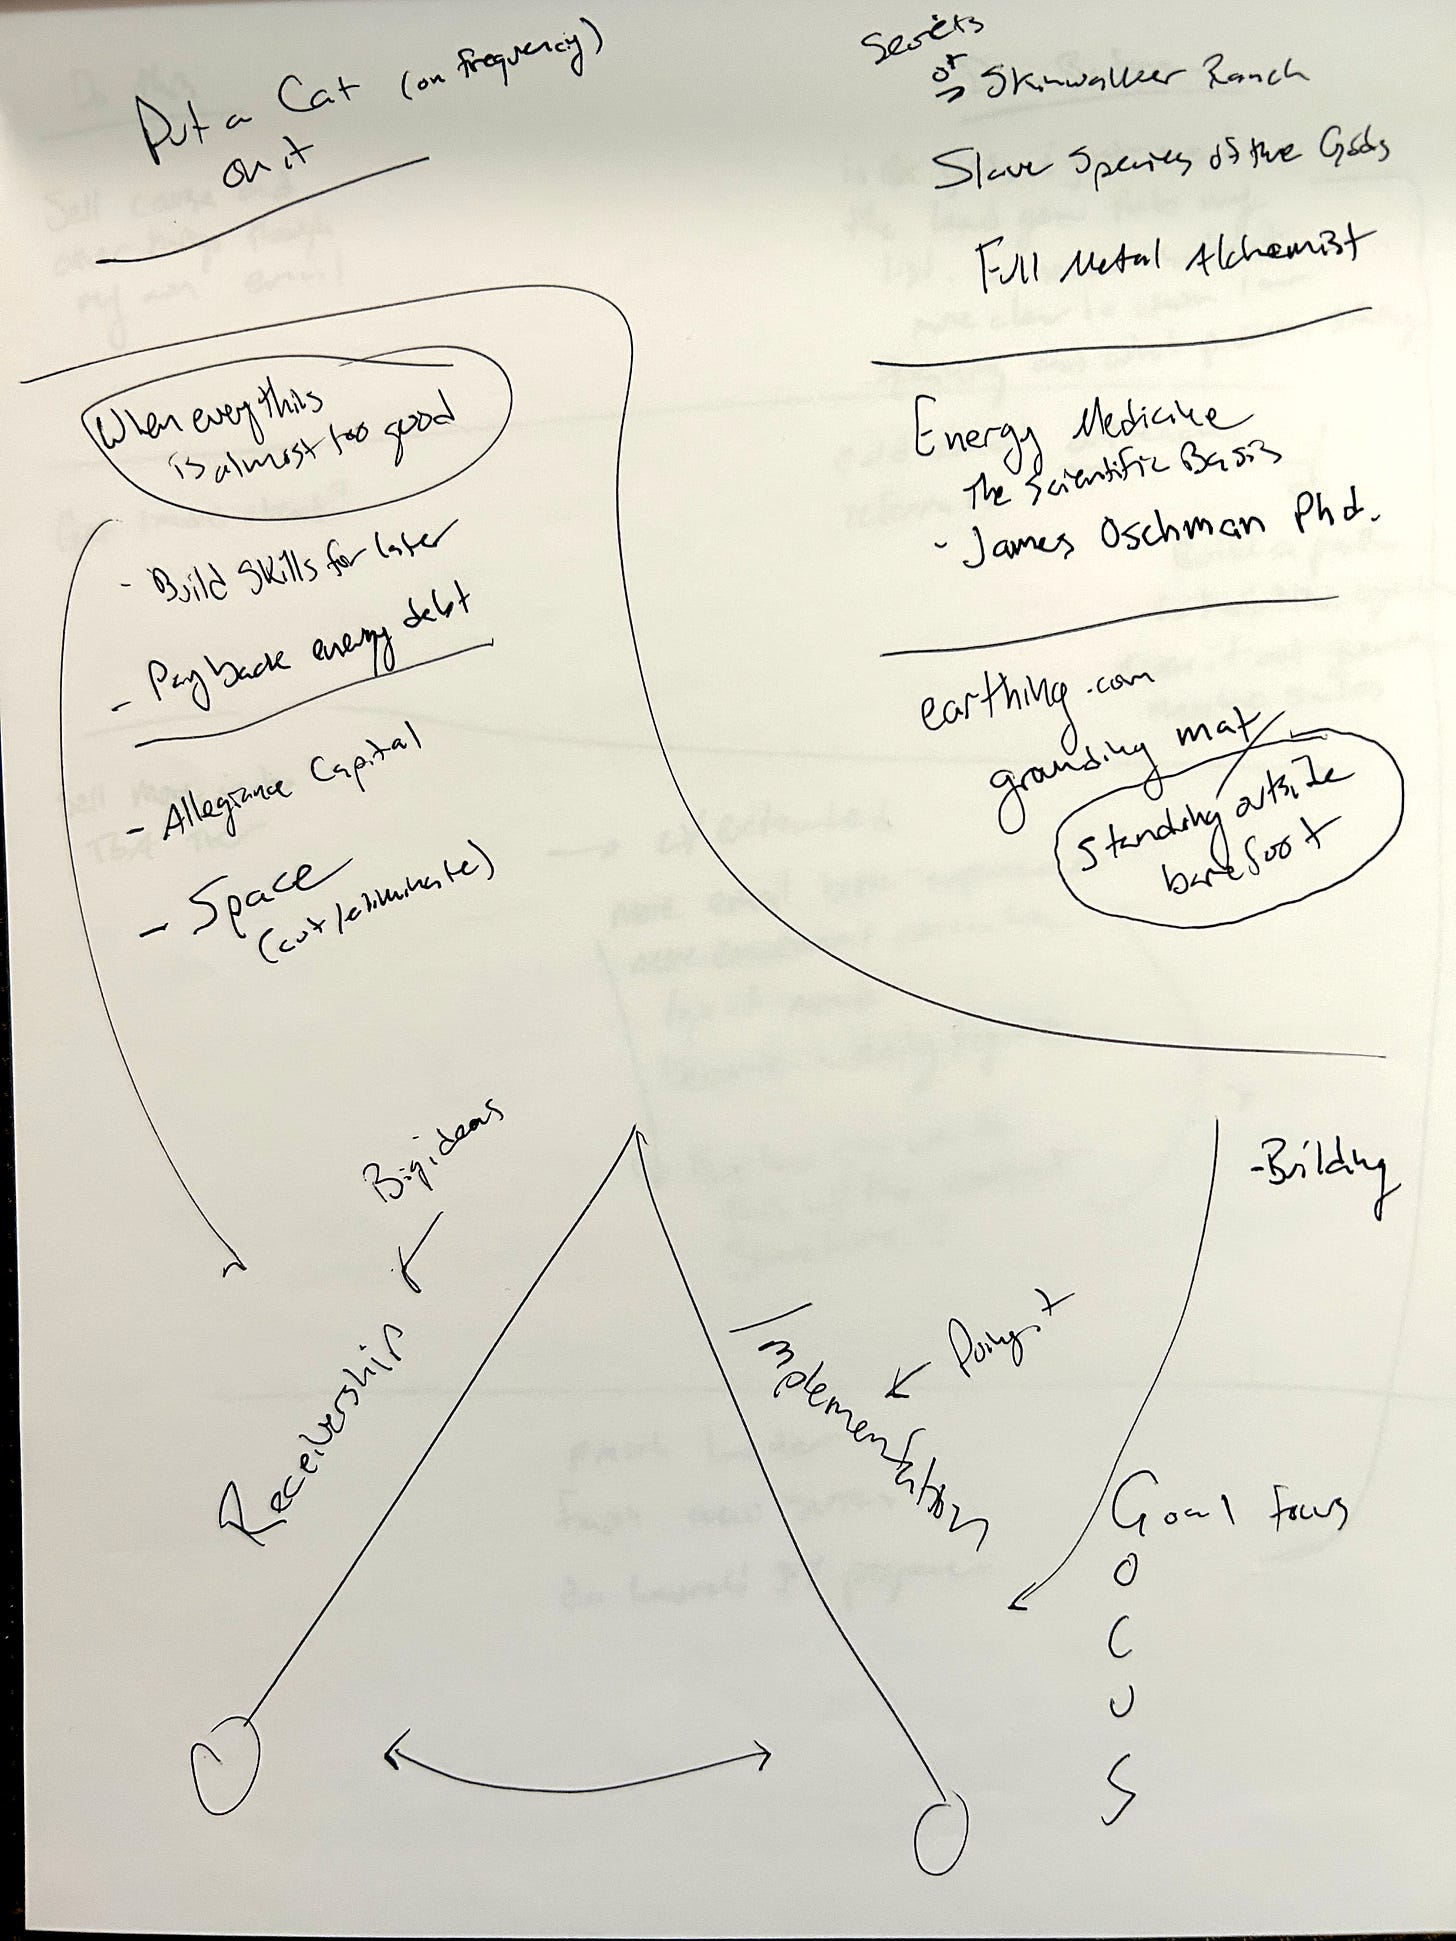 Put a Cat (on frequency)
on it
Secrets
of
Skinwalker Ranch
Slave Species of the Gods
Full Metal Alchemist
When everythis
is almost too good
- Build Skills for later
- Pay back energy debt
- Allegiance Capital
- Space
(cut/eliminate)
Energy Medicine
The Scientific Basis
- James Oschman Phd.
earthing.com
grounding mat
Standing outside
barefoot
Big ideas
Receivership
Implementation
- Building
Goal focus
O
C
U
S